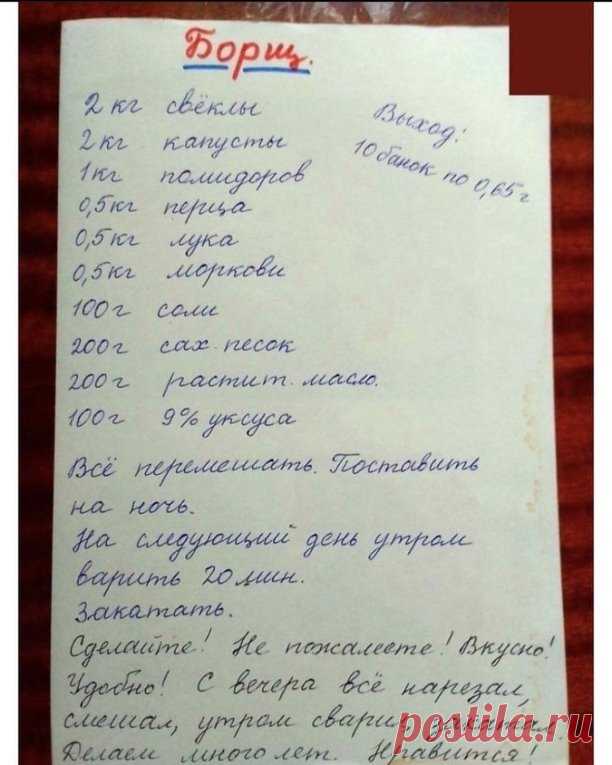 Борщ.
2 кг свёклы
2 кг капусты
1 кг помидоров
0,5 кг перца
0,5 кг лука
0,5 кг моркови
100 г соли
200 г сах. песок
200 г растит. масло.
100 г 9% уксуса
Выход!
10 банок по 0,65 г
Всё перемешать. Поставить
на ночь.
На следующий день утром
варить 20 мин.
Закатать.
Сделайте! Не пожалеете! Вкусно!
Удобно! С вечера всё нарезал,
смешал, утром сварил
Делаем много лет. Нравится!
postila.ru